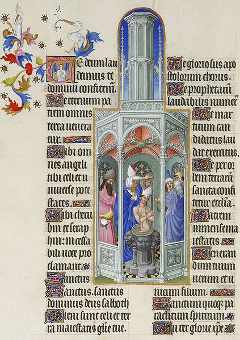 Te deum lau
damus te
dominum confitem̄
Te eternum pa
trem omnis
terra venera
tur.
Tibi om
nes angeli
tibi celi et u
niverse pote
states.
Tibi cheru
bin et seraph
bin: incessa
bili voce pro
clamant.
Sanctus
Sanctus. sanctus
dominus deus sabaoth
Pleni sunt celi et ter
ra maiestatis glorie tue.
Te gloriosus apo
stolorum chorus.
Te prophetarum
laudabilis numer
Te mar
tirum can
didatus lau
dat exercitus
Te per or
bem terrarum
sancta confi
tetur ecclesia
Patrem
immense ma
iestatis
Veneran
dum
nicum filium.
Sanctum quoque pa
raclitum spiritum
Tu rex glorie xpe